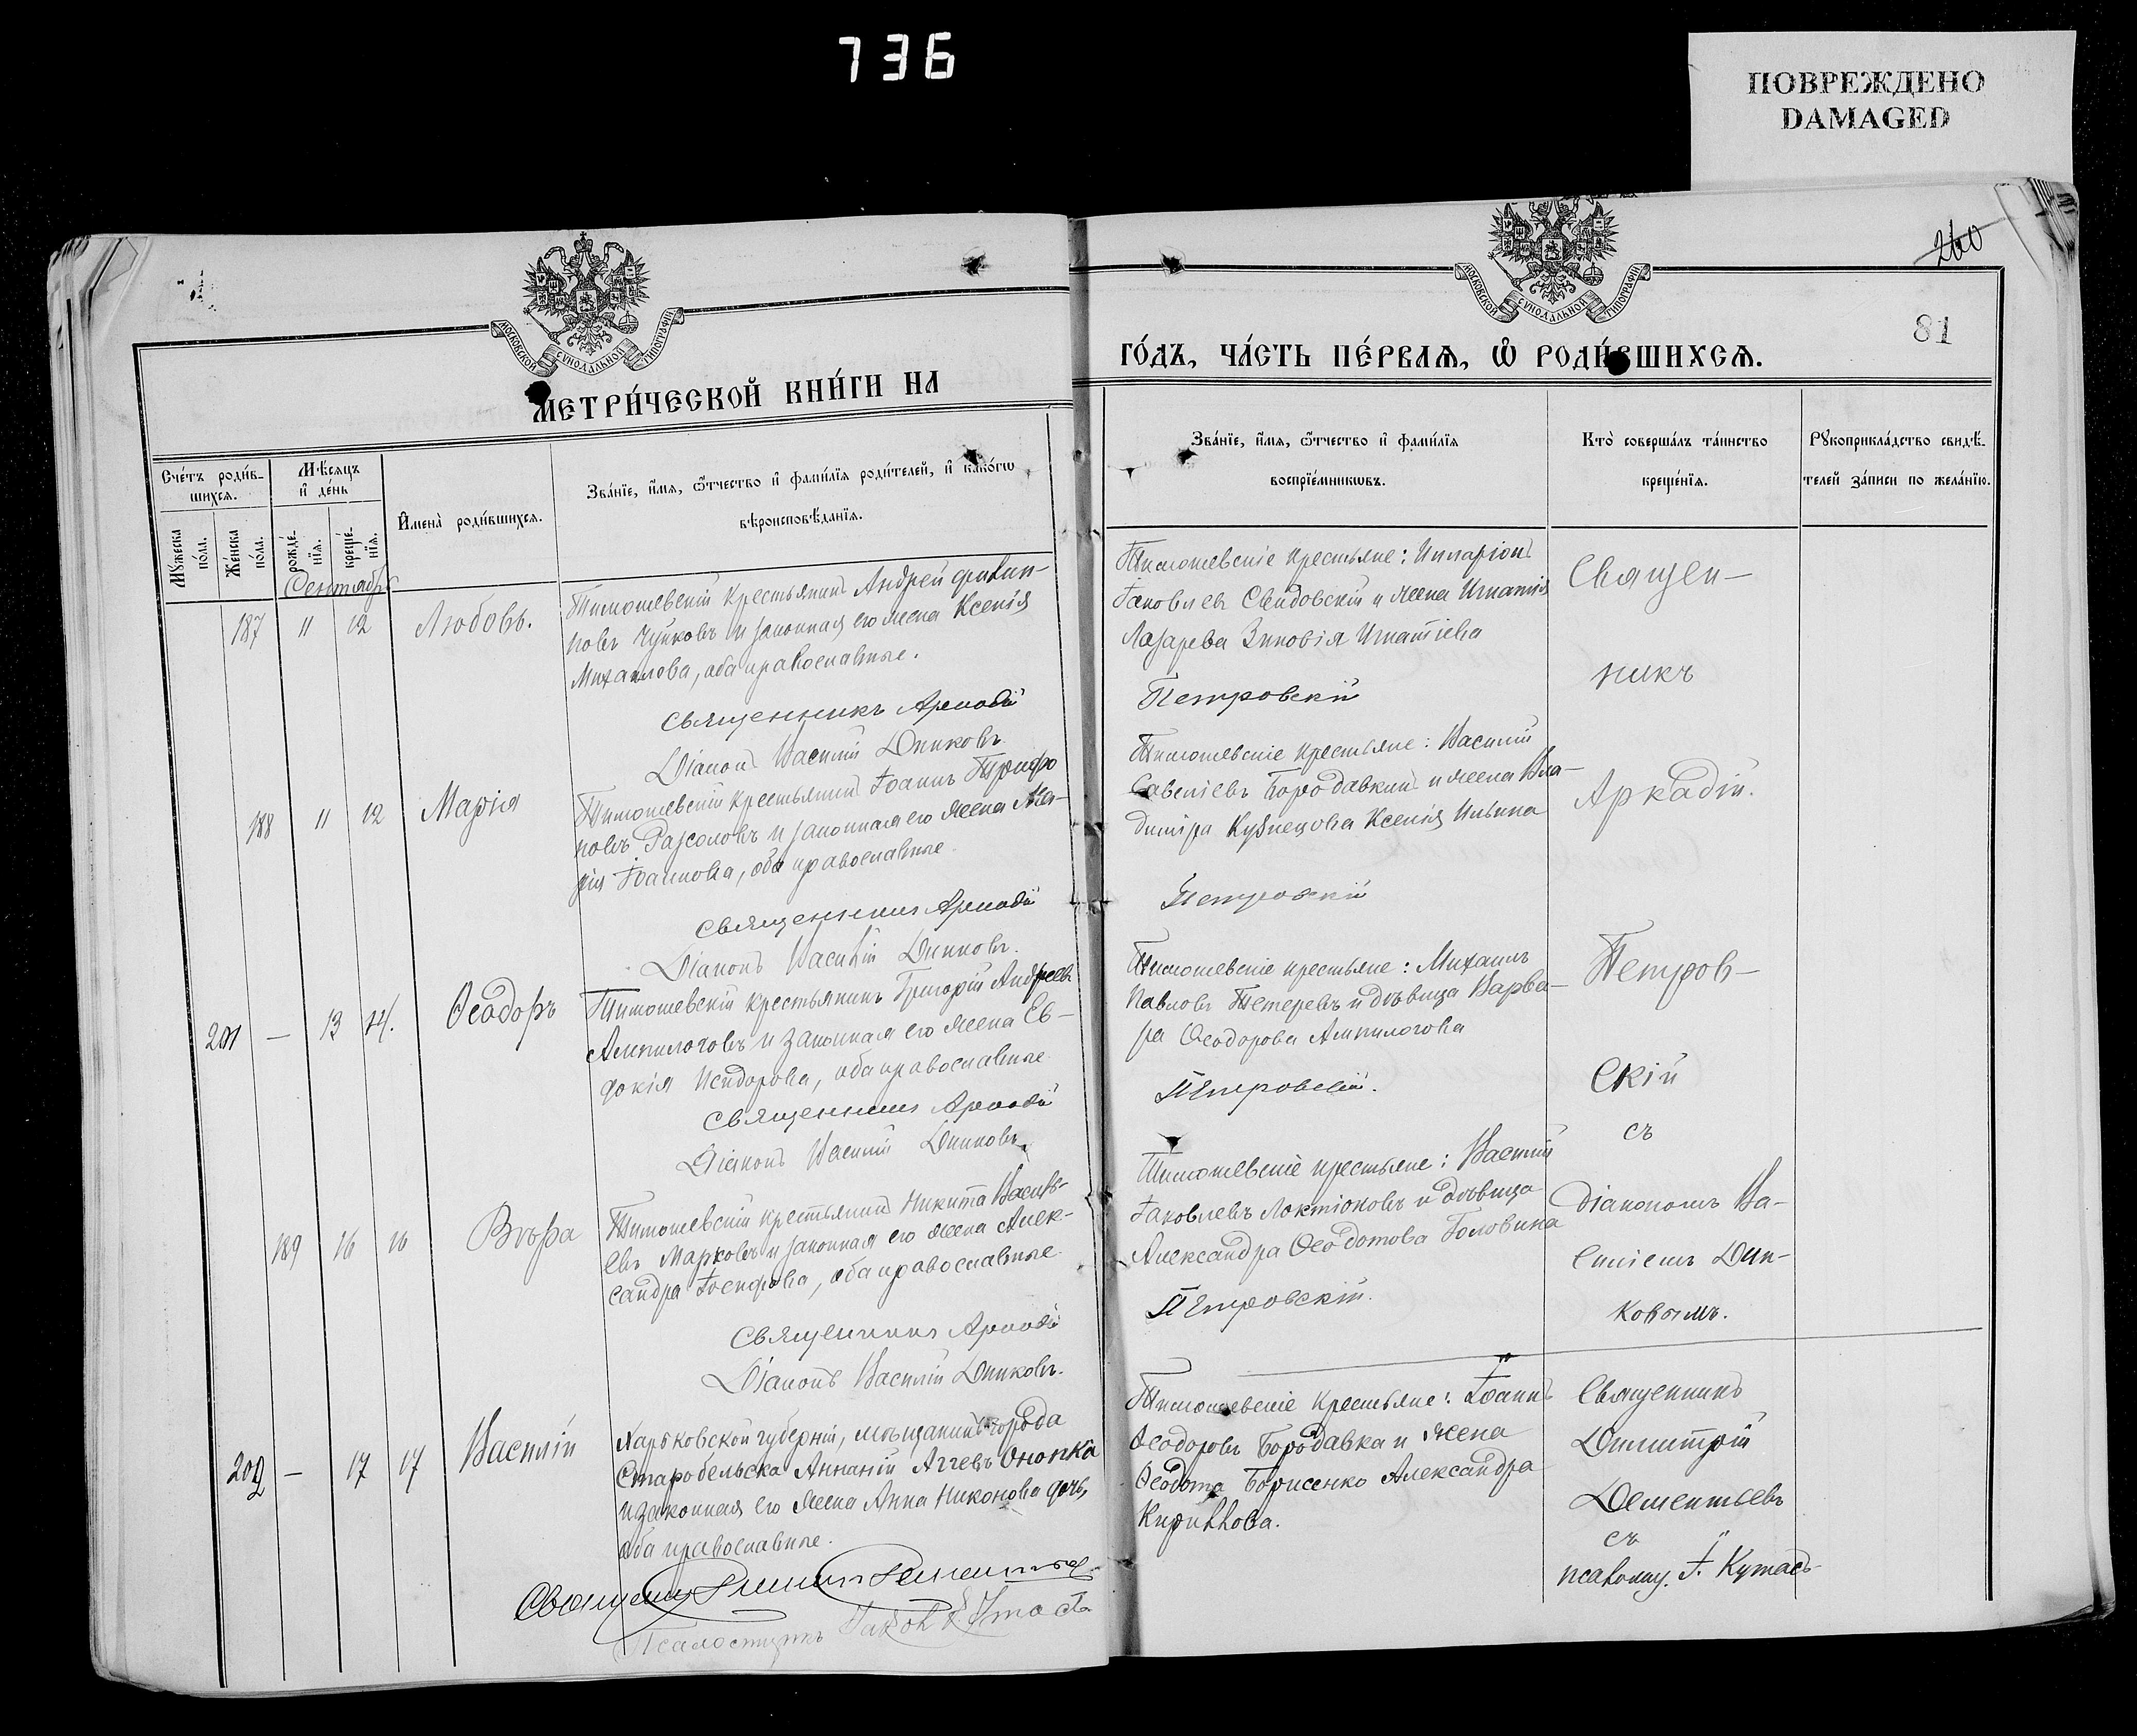 736
ПОВРЕЖДЕНО
DAMAGED
260
81
МОСКОВСКОЙ СУНОДАЛЬНОЙ ТИПОГРАФІИ
МОСКОВСКОЙ СУНОДАЛЬНОЙ ТИПОГРАФІИ
МЕТРИ́ЧЕСКОЙ КНИ́ГИ НА
ГО́ДЪ, ЧА́СТЬ ПЕ́РВАѦ, Ѡ҆ РОДИ́ВШИХСѦ.
Сче́тъ роди́в-
шихсѧ.
Мѣсѧцъ
и҆ де́нь
И҆мена̀ роди́вшихсѧ.
Зва́нїе, и҆́мѧ, ѻ҆́тчество и҆ фами́лїѧ роди́телей, и҆ како́гѡ
вѣроисповѣ́данїѧ.
Мꙋ́жеска
по́ла.
Же́нска
по́ла.
рожде́-
нїѧ.
креще́-
нїѧ.
Зва́нїе, и҆́мѧ, ѻ҆́тчество и҆ фами́лїѧ
воспрїе́мникѡвъ.
Кто̀ соверша́лъ та́инство
креще́нїѧ.
Рꙋкоприкла́дство свидѣ́-
телей за́писи по жела́нїю.
Сентябрь
187 11 12 Любовь.
Тимошевскій крестьянинъ Андрей Филип-
повъ Чупковъ и законная его жена Ксенія
Михаилова, оба православные.
Священникъ Аркадій
Діаконъ Василій Дпиковъ.
Тимошевскіе крестьяне: Иларіонъ
Іаковлевъ Свидовскій и жена Игнатія
Лазарева Зиновія Игнатіева
Петровскій
Священ-
никъ
188 11 12 Марія
Тимошевскій крестьянинъ Іоаннъ Трифо
новъ Разсоловъ и законная его жена Ма-
рія Іоаннова, оба православные.
Священникъ Аркадій
Діаконъ Василій Дпиковъ.
Тимошевскіе крестьяне: Василій
Савеліевъ Бородавкинъ и жена Вла-
диміра Кузнецова Ксенія Ильина
Петровскій
Аркадій.
201 — 13 14. Ѳеодоръ
Тимошевскій крестьянинъ Григорій Андреевъ
Ампилоговъ и законная его жена Ев-
докія Исидорова, оба православные
Священникъ Аркадій
Діаконъ Василій Дпиковъ.
Тимошевскіе крестьяне: Михаилъ
Павловъ Тетеревъ и дѣвица Варва-
ра Ѳеодорова Ампилогова
Петровскій.
Петров-
скій
съ
189 16 16 Вѣра
Тимошевскій крестьянинъ Никита Василь-
евъ Марковъ и законная его жена Алек-
сандра Іосифова, оба православные.
Священникъ Аркадій
Діаконъ Василій Дпиковъ.
Тимошевскіе крестьяне: Василій
Іаковлевъ Локтіоновъ и дѣвица
Александра Ѳеодотова Головина
Петровскій.
Діакономъ Ва-
силіемъ Дпи-
ковымъ.
202 — 17 17 Василій
Харьковской губерніи, мѣщанинъ города
Старобельска Ананій Аггеевъ Онопка
и законная его жена Анна Никонова дочь,
оба православные.
Псаломщикъ Іаковъ Кутасъ
Тимошевскіе крестьяне: Іоаннъ
Ѳеодоровъ Бородавка и жена
Ѳеодота Борисенко Александра
Кириллова.
Священникъ
Димитрій
Дементьевъ
съ
псаломщ. І. Кутасъ